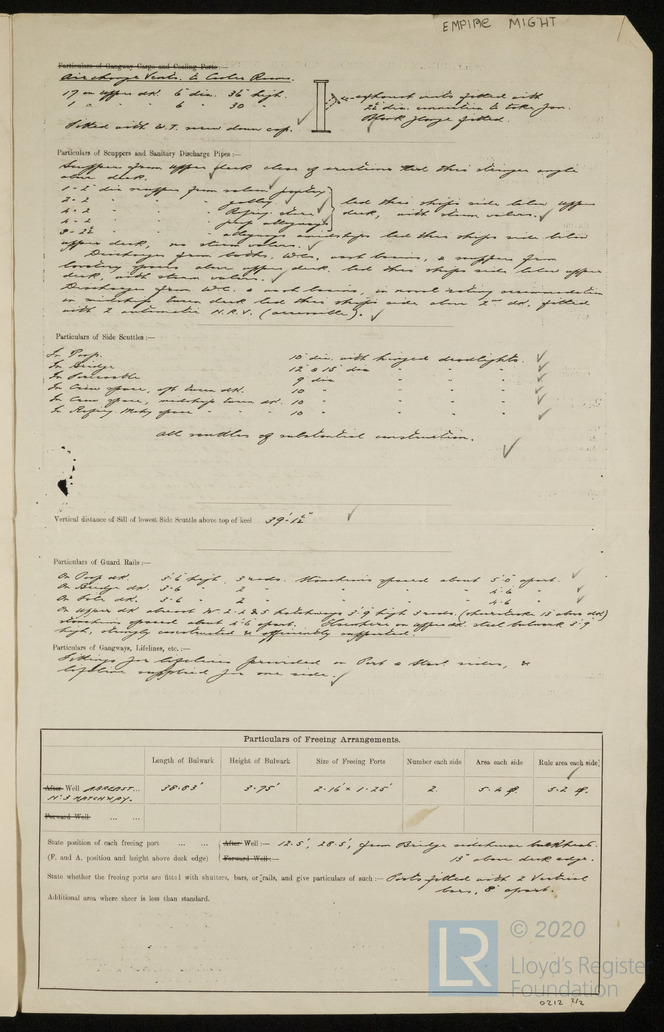 EMPIRE MIGHT
Particulars of Gangway Cargo and Coaling Ports:—
17 on upper dk. 6" dia. 36" high.
1 " " " 6 " 30 "
Fitted with W.T. screw down cap.
exhaust vents fitted with
2½" dia. connection to take fan.
Blank flange fitted.
Particulars of Scuppers and Sanitary Discharge Pipes:—
Scuppers from upper deck clear of erections led thro stringer angle
above deck.
1 - 2" dia scupper from saloon pantry
2 - 2 " " " galley
4 - 2 " " " Refrig. stores
4 - 2 " " " alleyways
led thro ships side below upper
deck, with storm valves.
alleyways amidships led thro ships side below
upper deck, no storm valves.
Discharges from baths, W.Cs, wash basins, & scuppers from
spaces above upper deck led thro ships side below upper
deck, with storm valves.
Discharges from W.C. & wash basins, in naval rating accommodation
in midship tween deck led thro ships side above 2nd dk. fitted
with 2 automatic N.R.V. (accessible).
Particulars of Side Scuttles:—
In Poop. 10" dia. with hinged deadlights.
In Bridge 12 & 15" dia " " "
In Forecastle 9" dia " " "
In Crew space, aft tween dk. 10 " " " "
In Crew space, midships tween dk. 10 " " " "
In Refrig. Mchy space " " " 10 " " " "
All scuttles of substantial construction.
Vertical distance of Sill of lowest Side Scuttle above top of keel 39'-1½"
Particulars of Guard Rails:—
On Poop dk. 3'-6" high. 3 rods. Stanchions spaced about 5'-0" apart.
On Bridge dk. 3-6 " 2 " " " " 4-6 "
On Fcle dk. 3-6 " 2 " " " " 4-6 "
On upper dk abreast No 2-4 & 5 hatchways 3'9" high 3 rods. (sheerstrake 13" above dk)
stanchions spaced about 4'6" apart. Elsewhere on upper dk. steel bulwark 3'9"
high, strongly constructed & efficiently supported.
Particulars of Gangways, Lifelines, etc.:—
Fittings for lifelines provided on Port & Starb sides, &
lifeline supplied for one side.
Particulars of Freeing Arrangements.
Length of Bulwark Height of Bulwark Size of Freeing Ports Number each side Area each side Rule area each side
After Well ABREAST... 38.83' 3.75' 2.16' x 1.25' 2. 5.4 ф. 5.2 ф.
No 3 HATCHWAY.
Forward Well ... ...
State position of each freeing port ... ... After Well:— 12.5', 28.5', from Bridge sidehouse bulkhead.
(F. and A. position and height above deck edge) Forward Well:— 15" above deck edge.
State whether the freeing ports are fitted with shutters, bars, or rails, and give particulars of such:— Ports fitted with 2 Vertical
bars, 8" apart.
Additional area where sheer is less than standard.
LR © 2020
Lloyd's Register
Foundation
0212 2/2